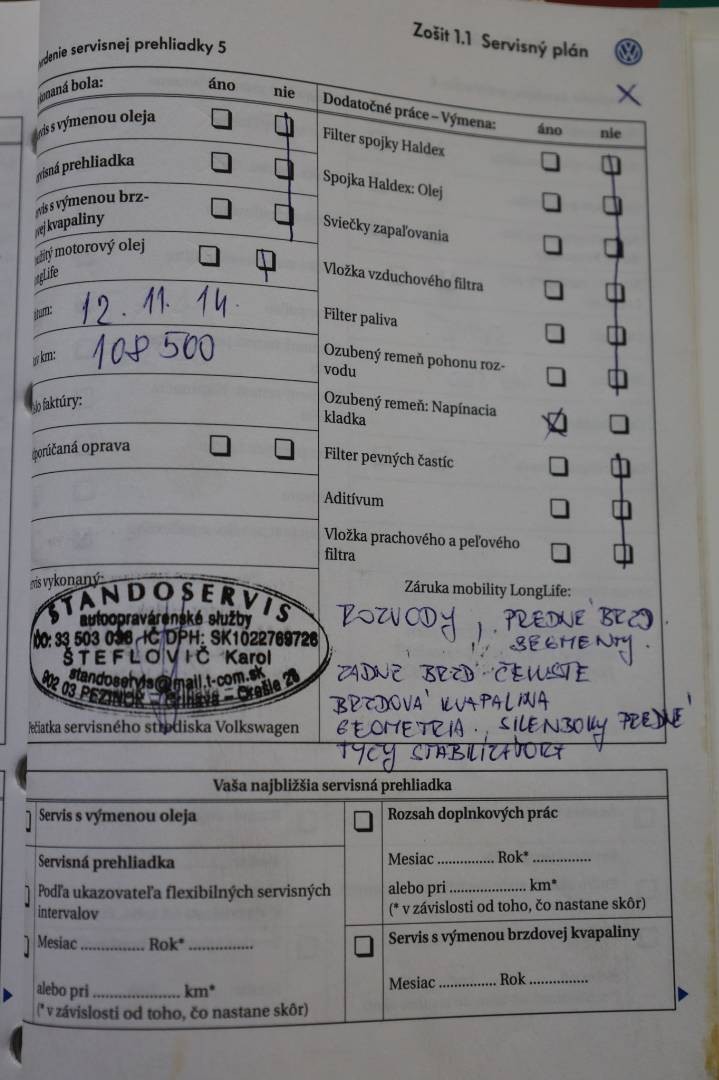 Zošit 1.1 Servisný plán
rdenie servisnej prehliadky 5
konaná bola: áno nie
vis s výmenou oleja
visná prehliadka
vis s výmenou brz-
vej kvapaliny
užitý motorový olej
ngLife
tum: 12. 11. 14.
av km: 108 500
slo faktúry:
porúčaná oprava
Dodatočné práce – Výmena: áno nie
Filter spojky Haldex
Spojka Haldex: Olej
Sviečky zapaľovania
Vložka vzduchového filtra
Filter paliva
Ozubený remeň pohonu roz-
vodu
Ozubený remeň: Napínacia
kladka
Filter pevných častíc
Aditívum
Vložka prachového a peľového
filtra
vis vykonaný:
STANDOSERVIS
autoopravárenské služby
IČO: 33 503 036 IČ DPH: SK1022769726
ŠTEFLOVIČ Karol
standoservis@mail.t-com.sk
902 03 PEZINOK – Grinava – Orešie 26
Pečiatka servisného strediska Volkswagen
Záruka mobility LongLife:
ROZVODY, PREDNÉ BRZD.
SEGMENTY.
ZADNÉ BRZD. ČELUSTE
BRZDOVÁ KVAPALINA
GEOMETRIA, SILENBOKY PREDNÉ
TYČY STABILIZÁTORA
Vaša najbližšia servisná prehliadka
Servis s výmenou oleja
Servisná prehliadka
Podľa ukazovateľa flexibilných servisných
intervalov
Mesiac .............. Rok* ..............
alebo pri .................... km*
(* v závislosti od toho, čo nastane skôr)
Rozsah doplnkových prác
Mesiac ............. Rok* .............
alebo pri .................. km*
(* v závislosti od toho, čo nastane skôr)
Servis s výmenou brzdovej kvapaliny
Mesiac ............. Rok .............